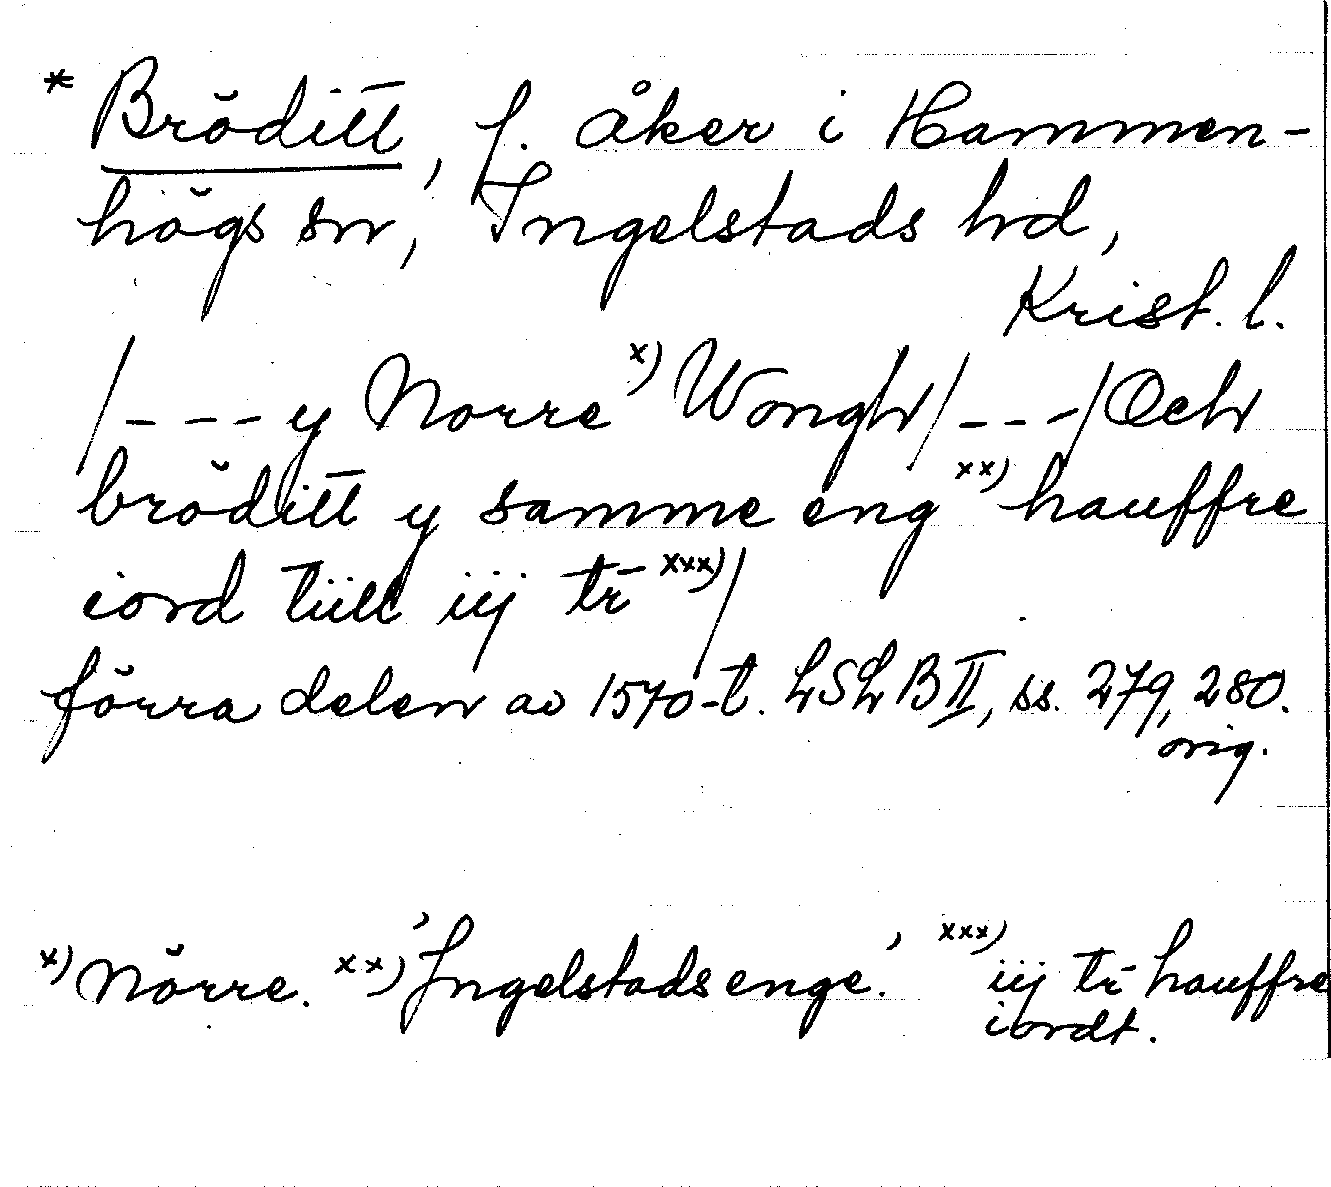 * Bröditt, f. åker i Hammen-
högs sn, Ingelstads hd,
Krist. l.
/---y Norre x) Wongh/---/Och
bröditt y samme eng xx) hauffre
iord tiill iij tr xxx)/
förra delen av 1570-t. LSLB II, ss. 279, 280.
orig.
x) Nörre. xx) 'Ingelstads enge.' xxx) iij tr hauffre
iordt.